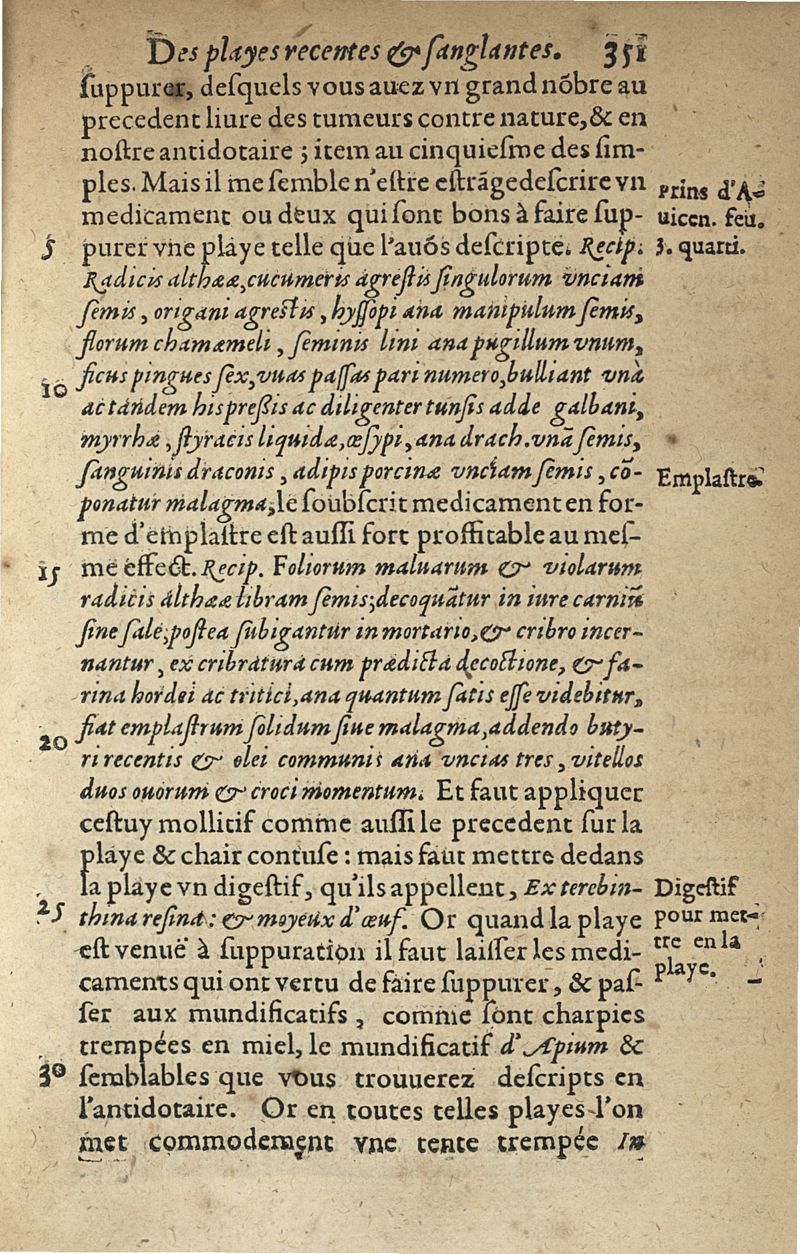 Des playes recentes & sanglantes. 351
ſuppurer, deſquels vous auez vn grand nõbre au
precedent liure des tumeurs contre nature, & en
noſtre antidotaire ; item au cinquieſme des ſim-
ples. Mais il me ſemble n'eſtre eſtrãge deſcrire vn
medicament ou deux qui ſont bons à faire ſup-
purer vne playe telle que l'auõs deſcripte. Recip.
Radicis althææ, cucumeris agreſtis ſingulorum vnciam
ſemis, origani agreſtis, hyſſopi ana manipulum ſemis,
florum chamæmeli, ſeminis lini ana pugillum vnum,
ficus pingues ſex, vuas paſſas pari numero, bulliant vnà
ac tandem his preſsis ac diligenter tunſis adde galbani,
myrrhæ, ſtyracis liquidæ, œſypi, ana drach. vnã ſemis,
ſanguinis draconis, adipis porcinæ vnciam ſemis, cõ-
ponatur malagma, le ſoubſcrit medicament en for-
me d'emplaſtre eſt auſſi fort proffitable au meſ-
me effect. Recip. Foliorum maluarum & violarum
radicis althææ libram ſemis; decoquãtur in iure carniũ
ſine ſale, poſtea ſubigantur in mortario, & cribro incer-
nantur, ex cribratura cum prædicta decoctione, & fa-
rina hordei ac tritici, ana quantum ſatis eſſe videbitur,
fiat emplaſtrum ſolidum ſiue malagma, addendo buty-
ri recentis & olei communis ana vncias tres, vitellos
duos ouorum & croci momentum. Et faut appliquer
ceſtuy mollitif comme auſſi le precedent ſur la
playe & chair contuſe : mais faut mettre dedans
la playe vn digeſtif, qu'ils appellent, Ex terebin-
thina reſina: & moyeux d'œuf. Or quand la playe
eſt venuë à ſuppuration il faut laiſſer les medi-
caments qui ont vertu de faire ſuppurer, & paſ-
ſer aux mundificatifs, comme ſont charpies
trempées en miel, le mundificatif d'Apium &
ſemblables que vous trouuerez deſcripts en
l'antidotaire. Or en toutes telles playes l'on
met commodement vne tente trempée In
5
10
15
20
25
30
Prins d'A-
uicen. feu.
3. quarti.
Emplaſtre.
Digeſtif
pour met-
tre en la
playe.